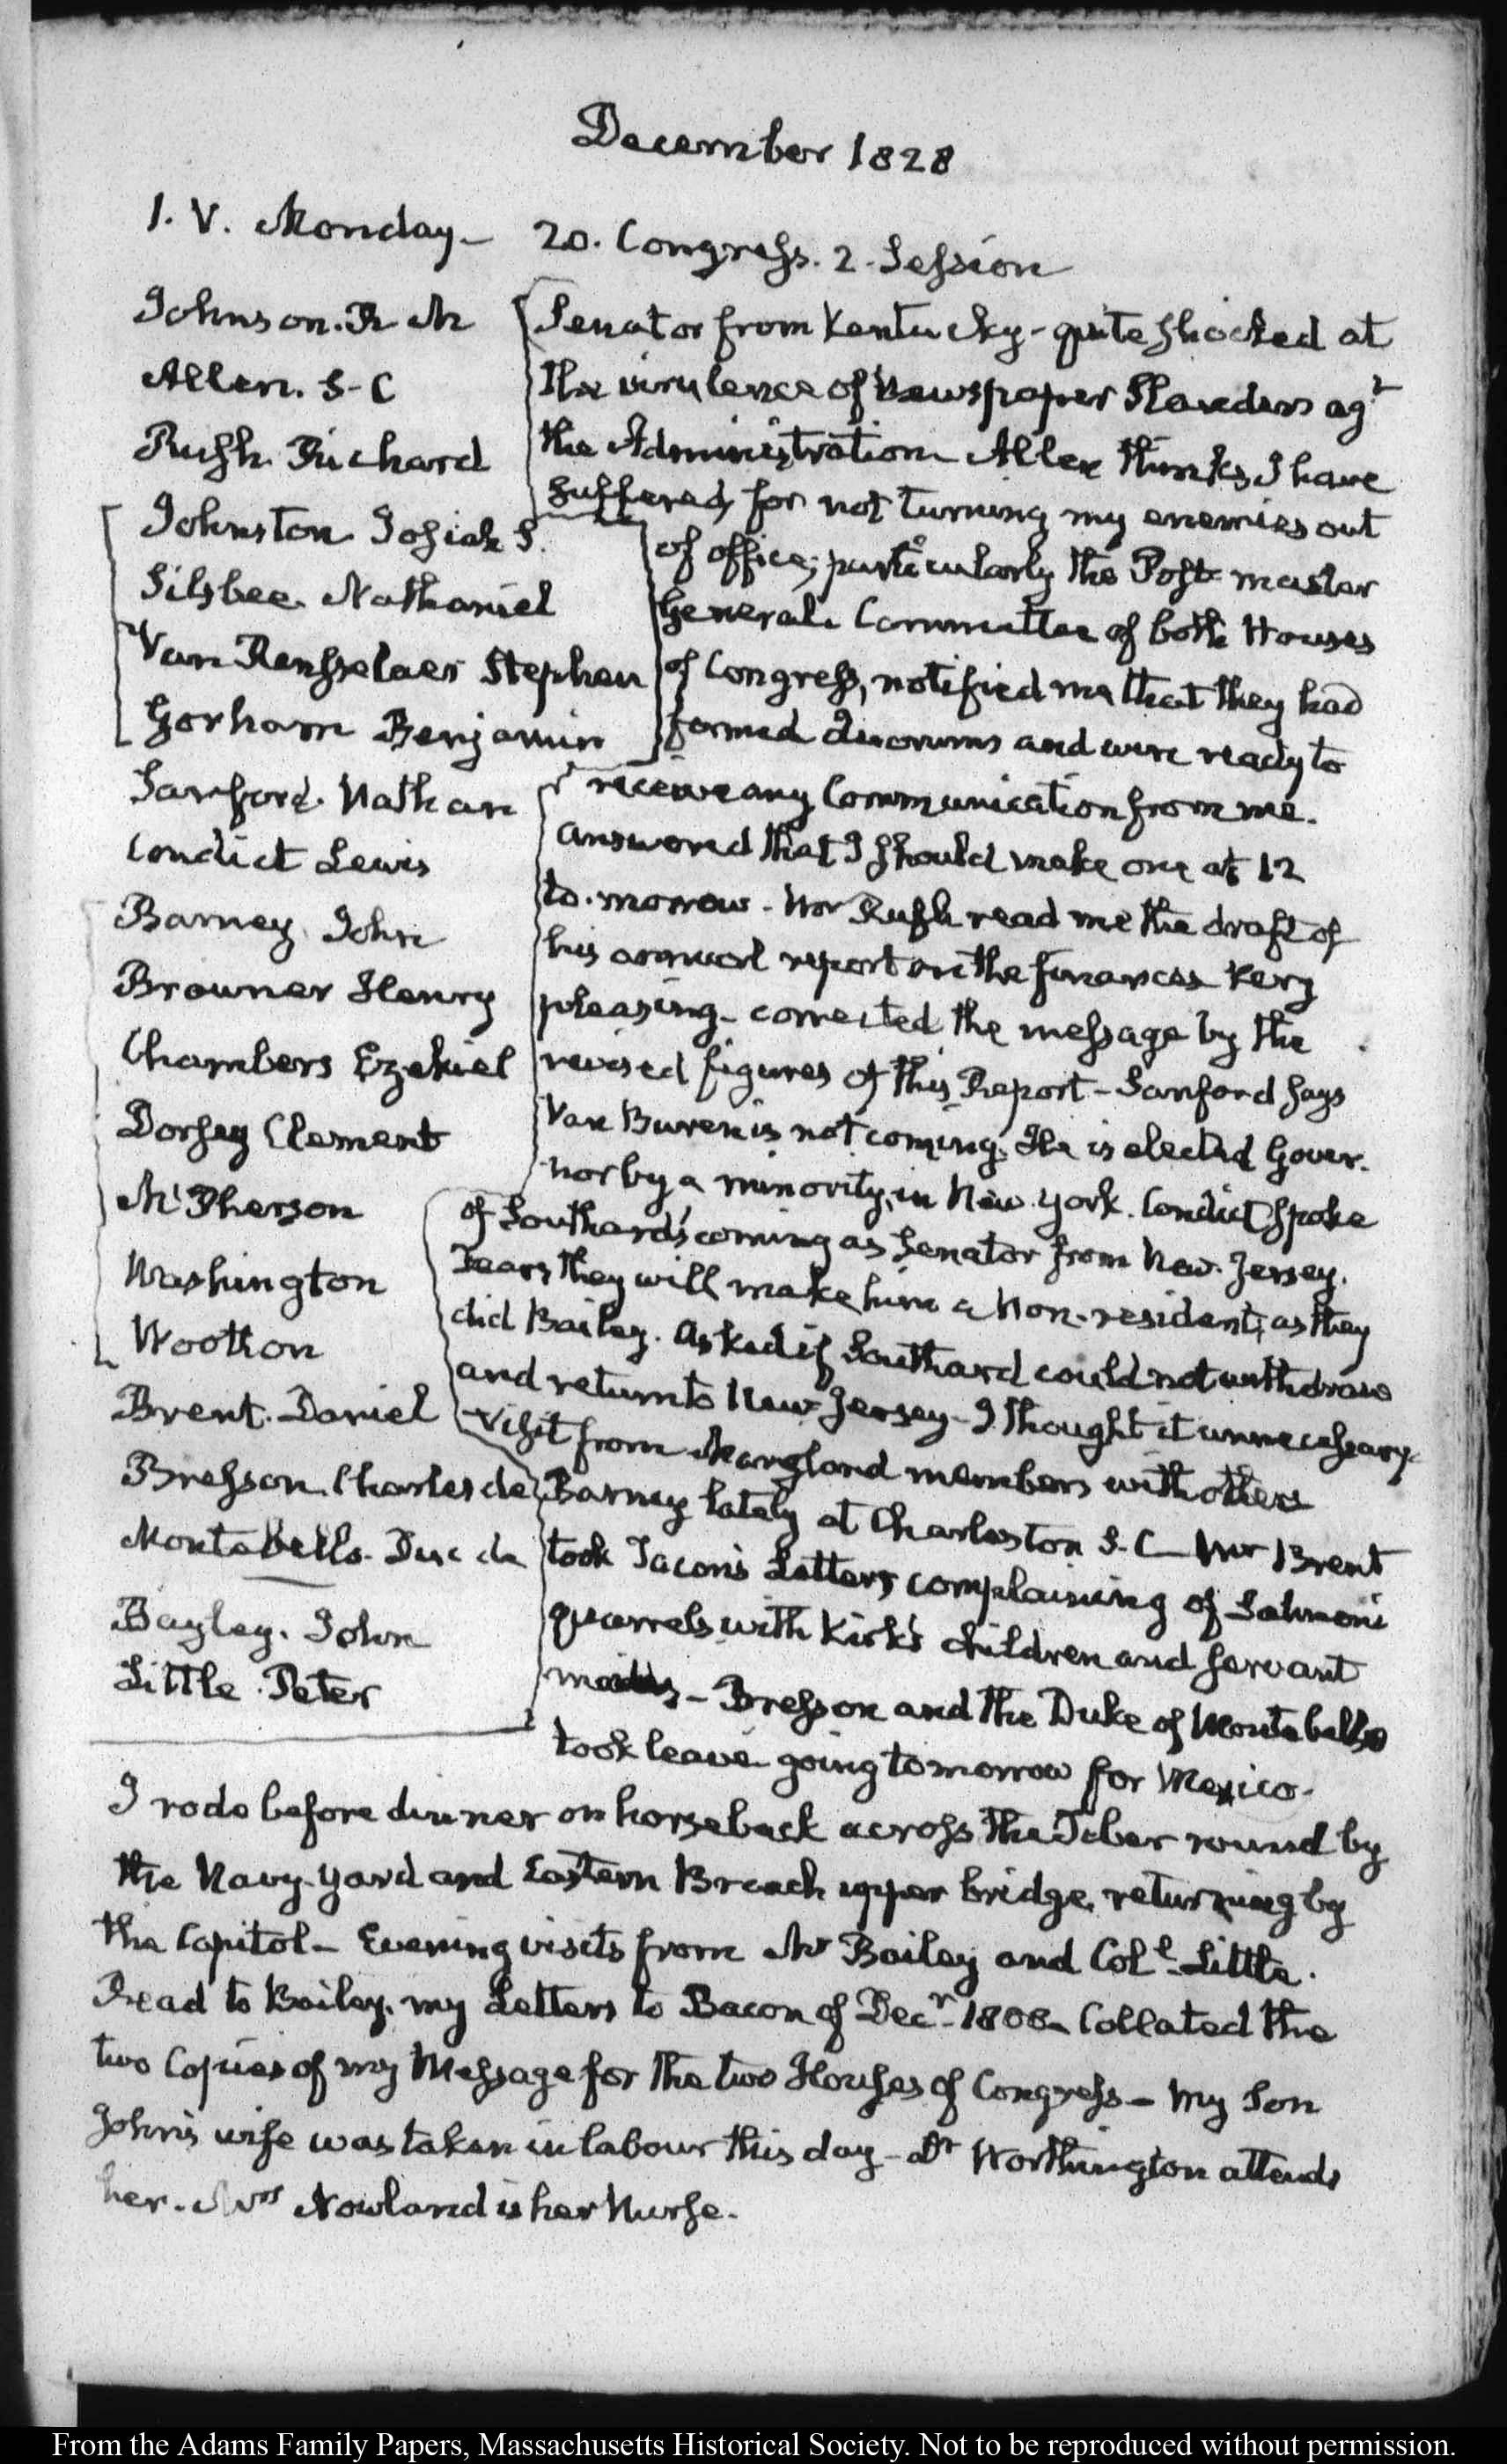 December 1828
1. V. Monday-
20. Congress. 2. Session
Johnson. R M
Allen. S-C
Rush. Richard
Johnston Josiah S.
Silsbee. Nathaniel
Van Rensselaer Stephen
Gorham Benjamin
Sanford. Nathan
Condict Lewis
Barney John
Browner Henry
Chambers Ezekiel
Dorsey Clement
McPherson
Washington
Wootton
Brent. Daniel
Bresson. Charles de
Montebello. Duc de
Bayley. John
Little. Peter
Senator from Kentucky- quite shocked at
the virulence of Newspaper Slanders agt
the Administration- Allen thinks I have
suffered, for not turning my enemies out
of office; particularly the Post master
General. Committee of both Houses
of Congress, notified me that they had
formed Quorums and were ready to
receive any Communication from me.
answered that I should make one at 12
to-morrow. Mr Rush read me the draft of
his annual report on the finances. Very
pleasing- corrected the message by the
revised figures of this Report- Sanford says
Van Buren is not coming. He is elected Gover-
nor by a minority, in New-York. Condict spoke
of Southard's coming as Senator from New-Jersey.
Fears they will make him a Non-resident, as they
did Bailey. Asked if Southard could not withdraw
and return to New-Jersey- I thought it unnecessary-
Visit from Maryland members with others
Barney lately at Charleston S-C- Mr Brent
took Tacon's Letters complaining of Salmon's
quarrels with Kirk's children and servant
maids- Bresson and the Duke of Montebello
took leave going tomorrow for Mexico-
I rode before dinner on horseback across the Tiber round by
the Navy-Yard and Eastern Branch upper bridge, returning by
the Capitol- Evening visits from Mr Bailey and Coll Little.
Read to Bailey, my Letters to Bacon of Decr 1808. Collated the
two Copies of my Message for the two Houses of Congress- My Son
John's wife was taken in labour this day- Dr Worthington attends
her. Mrs Nowland is her Nurse.
From the Adams Family Papers, Massachusetts Historical Society. Not to be reproduced without permission.